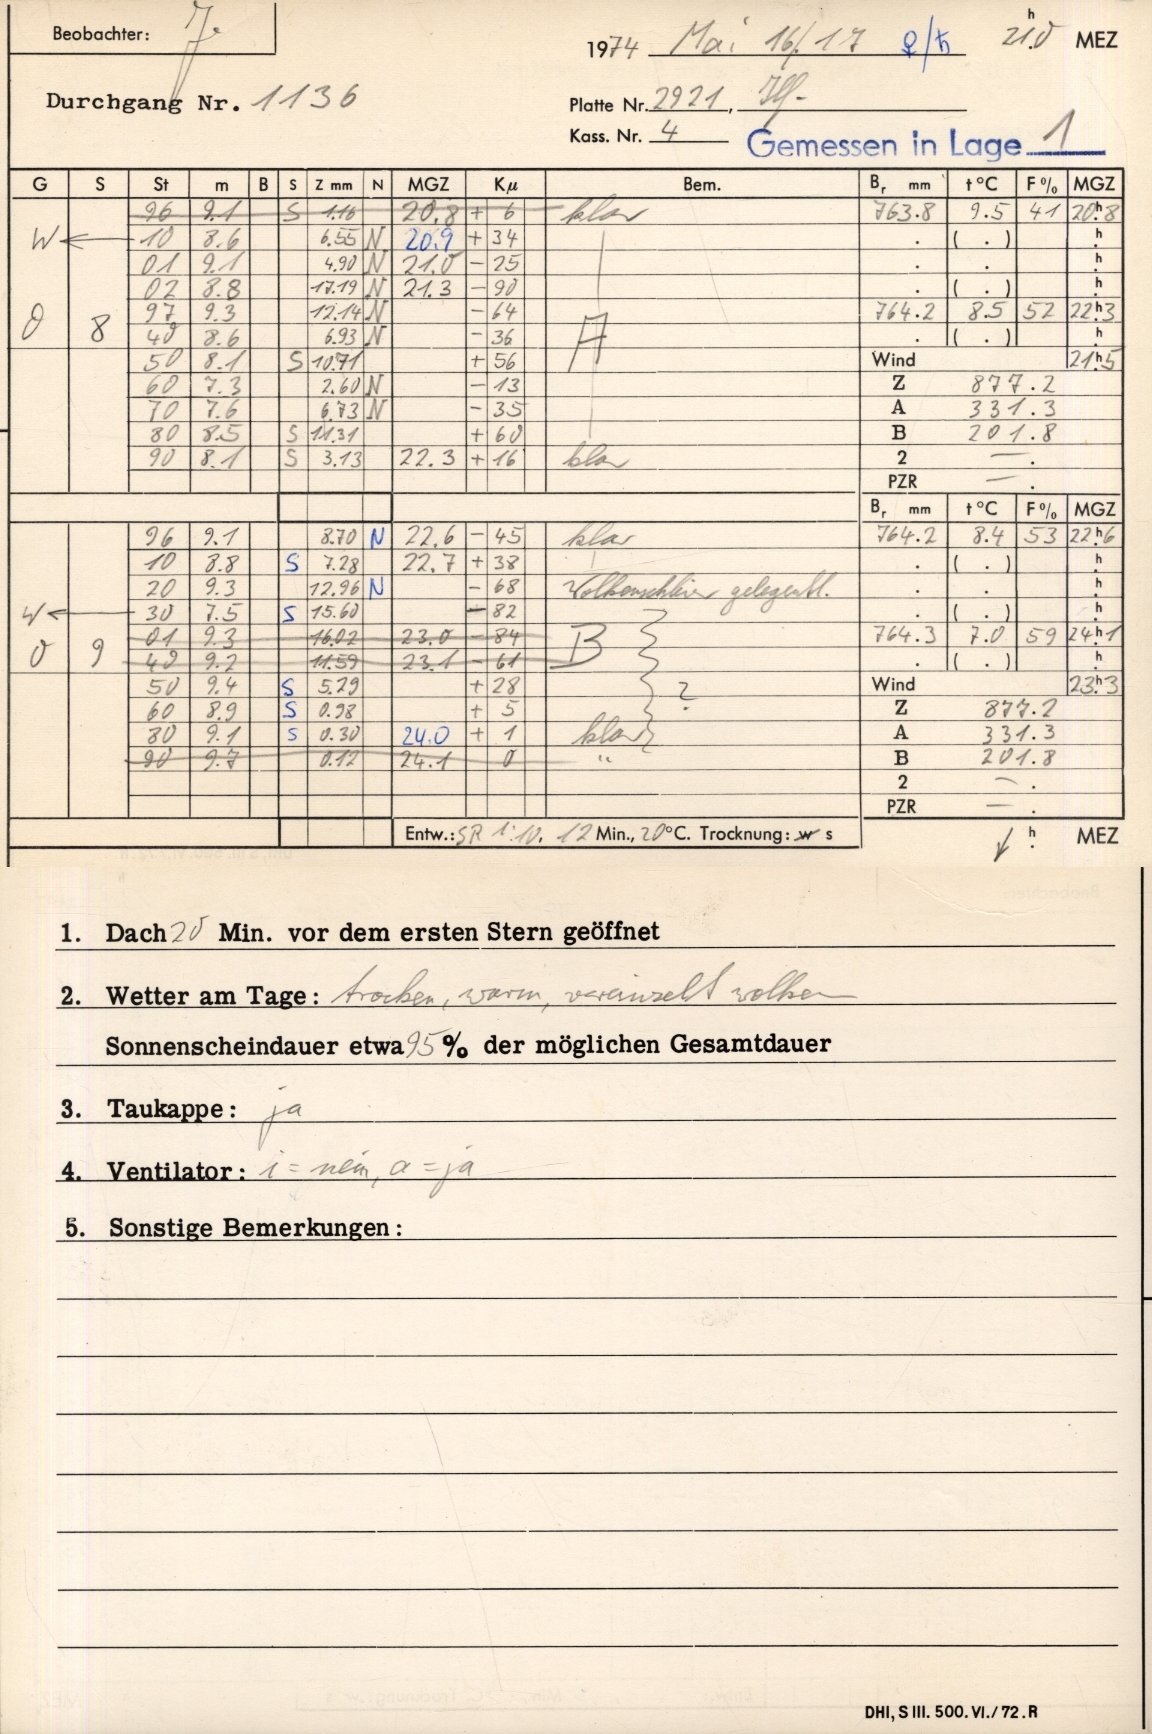 Beobachter: J.
1974 Mai 16/17 ♀/♄ 21.0 h MEZ
Durchgang Nr. 1136
Platte Nr. 2921,
Kass. Nr. 4 Gemessen in Lage 1
G S St m B S Z mm N MGZ Kμ Bem. Br mm t °C F % MGZ
96 9.1 S 1.16 20.8 + 6 klar 763.8 9.5 41 20h8
W ← 10 8.6 6.55 N 20.9 + 34 . ( . ) h.
01 9.1 4.90 N 21.0 - 25 . . h.
02 8.8 17.19 N 21.3 - 90 . ( . ) h.
0 8 97 9.3 12.14 N - 64 A 764.2 8.5 52 22h3
40 8.6 6.93 N - 36 . ( . ) h.
50 8.1 S 10.71 + 56 Wind 21h5
60 7.3 2.60 N - 13 Z 877.2
70 7.6 6.73 N - 35 A 331.3
80 8.5 S 11.31 + 60 B 201.8
90 8.1 S 3.13 22.3 + 16 klar 2 — .
PZR — .
Br mm t °C F % MGZ
96 9.1 8.70 N 22.6 - 45 klar 764.2 8.4 53 22h6
10 8.8 S 7.28 22.7 + 38 . ( . ) h.
20 9.3 12.96 N - 68 Wolkenschleier gelegentl. . . h.
W ← 30 7.5 S 15.60 - 82 . ( . ) h.
01 9.3 16.02 23.0 - 84 B 764.3 7.0 59 24h1
0 9 40 9.2 11.59 23.1 - 61 . ( . ) h.
50 9.4 S 5.29 + 28 ? Wind 23h3
60 8.9 S 0.98 + 5 Z 877.2
80 9.1 S 0.30 24.0 + 1 klar A 331.3
90 9.7 0.12 24.1 0 " B 201.8
2 — .
PZR — .
Entw.: SR 1:10. 12 Min., 20°C. Trocknung: w s h. MEZ
1. Dach 20 Min. vor dem ersten Stern geöffnet
2. Wetter am Tage: trocken, warm, vereinzelt wolken
Sonnenscheindauer etwa 95 % der möglichen Gesamtdauer
3. Taukappe: ja
4. Ventilator: i = nein, a = ja
5. Sonstige Bemerkungen:
DHI, S III. 500. VI./72. R